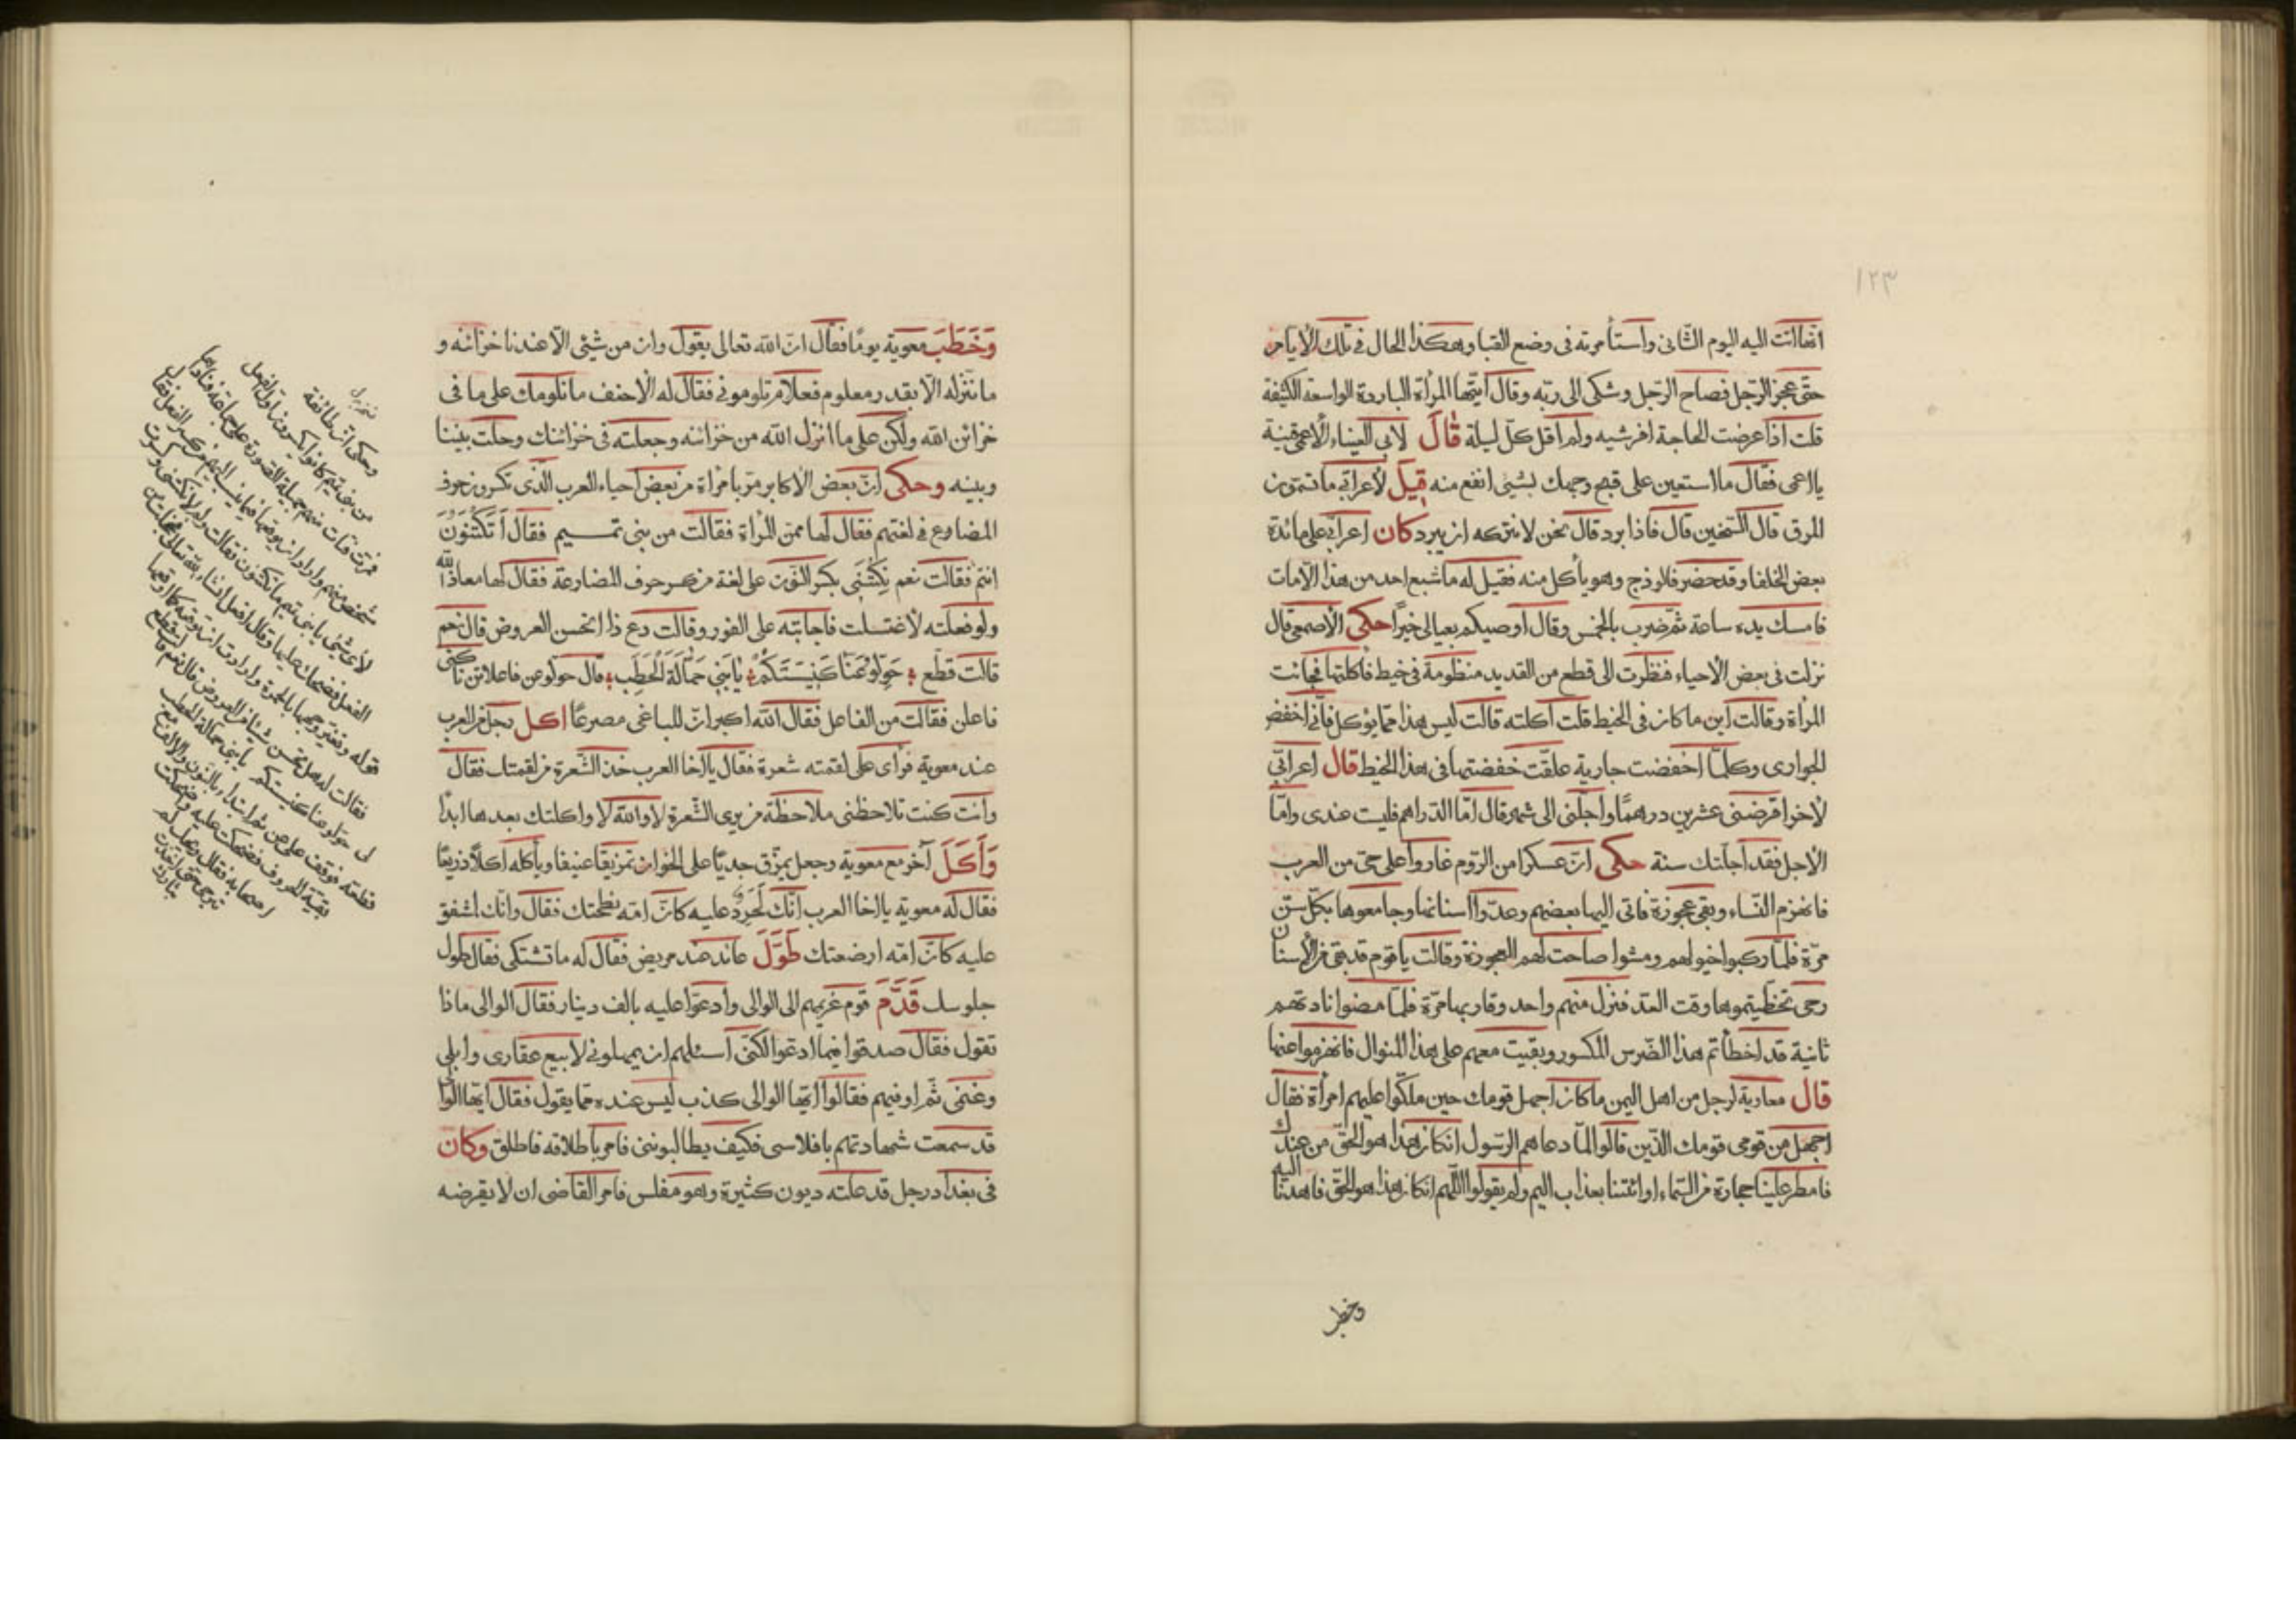 ١٢٣
اتفاالتت اليه اليوم الثانى واستأمرته فى وضع القبا وهكذا الحال فى تلك الايام
حتى عجز الرجل فصاح الرجل وشكى الى ربه وقال ايتها المرأة الباردة الواسعة الكثيفة
قلت اذا عرضت الحاجة افرشيه ولم اقل كل ليلة قال لابى العيناء الاعمى قينة
يا اعمى فقال ما استعين على قبح وجهك بشئ انفع منه قيل لأعرابى ما تسمون
المرق قال السخين قال فاذا برد قال نحن لا نتركه ان يبرد كان اعرابى على مائدة
بعض الخلفا وقد حضر فالوذج وهو يأكل منه فقيل له ما شبع احد من هذا الا مات
فامسك يده ساعة ثم ضرب بالخمس وقال اوصيكم بعيالى خيرا حكى الأصمعى قال
نزلت فى بعض الأحياء فنظرت الى قطع من القديد منظومة فى خيط فأكلتها فجائت
المرأة وقالت اين ما كان فى الخيط قلت اكلته قالت ليس هذا مما يؤكل فانى اخفض
الجوارى وكلما اخفضت جارية علقت خفضتها فى هذا الخيط قال اعرابى
لأخر اقرضنى عشرين درهما واجلنى الى شهر قال اما الدراهم فليست عندى واما
الاجل فقد اجلتك سنة حكى ان عسكرا من الروم غاروا على حى من العرب
فانهزم النساء وبقى عجوزة فاتى اليها بعضهم وعدوا اسنانها وجامعوها بكل سن
مرة فلما ركبوا خيولهم ومشوا صاحت لهم العجوزة وقالت يا قوم قد بقى من الأسنان
رحى تخطيتموها وقت العد فنزل منهم واحد وقاربها مرة فلما مضوا نادتهم
ثانية قد اخطأتم هذا الضرس المكسور وبقيت معهم على هذا المنوال فانهزموا عنها
قال معاوية لرجل من اهل اليمن ما كان اجهل قومك حين ملكوا عليهم امرأة فقال
اجهل من قومى قومك الذين قالوا لما دعاهم الرسول ان كان هذا هو الحق من عندك
فامطر علينا حجارة من السماء او ائتنا بعذاب اليم ولم يقولوا اللهم ان كان هذا هو الحق فاهدنا اليه
وخطب
وَخَطَبَ معوية يوما فقال ان الله تعالى يقول وان من شئ الا عندنا خزائنه و
ما ننزله الا بقدر معلوم فعلام تلومونى فقال له الأحنف ما نلومك على ما فى
خزائن الله ولكن على ما انزل الله من خزائنه وجعلته فى خزائنك وحلت بيننا
وبينه وحكى ان بعض الاكابر مر بامرأة من بعض احياء العرب الذى تكسرون حرف
المضارع فى لغتهم فقال لها ممن المرأة فقالت من بنى تمـــيم فقال أتكتنون
انتم فقالت نعم نِكتنى بكسر النون على لغة من كسر حروف المضارعة فقال لها معاذ الله
ولو فعلته لأغتسلت فاجابته على الفور وقالت دع ذا اتحسن العروض قال نعم
قالت قطع حولوا عنا كنيستكم يا بنى حمالة الحطب قال حولوعن فاعلاتن ناكنى
فاعلن فقالت من الفاعل فقال الله اكبر ان للباغى مصرعا اكل رجل من العرب
عند معوية فرأى على لقمته شعرة فقال يا اخا العرب خذ الشعرة من لقمتك فقال
وانت كنت تلاحظنى ملاحظة من يرى الشعرة لا والله لا واكلتك بعدها ابدا
وَأَكَلَ آخر مع معوية وجعل يمزق جديا على الخوان تمزيقا عنيفا ويأكله اكلا ذريعا
فقال له معوية يا اخا العرب انك لحرد عليه كان امه نطحتك فقال وانك اشفق
عليه كان امه ارضعتك طَوَّلَ عائد عند مريض فقال له ما تشتكى فقال طول
جلوسك قَدَّمَ قوم غريمهم الى الوالى وادعوا عليه بالف دينار فقال الوالى ماذا
تقول فقال صدقوا فيما ادعوا لكنى اسئلهم ان يمهلونى لابيع عقارى وابلى
وغنمى ثم اوفيهم فقالوا ايها الوالى كذب ليس عنده مما يقول فقال ايها الوالى
قد سمعت شهادتهم بافلاسى فكيف يطالبوننى فامر باطلاقه فاطلق وكان
فى بغداد رجل قد علته ديون كثيرة وهو مفلس فامر القاضى ان لا يقرضه
وحكى ان طائفة
من بنى تميم كانوا يكسرون اول الفعل